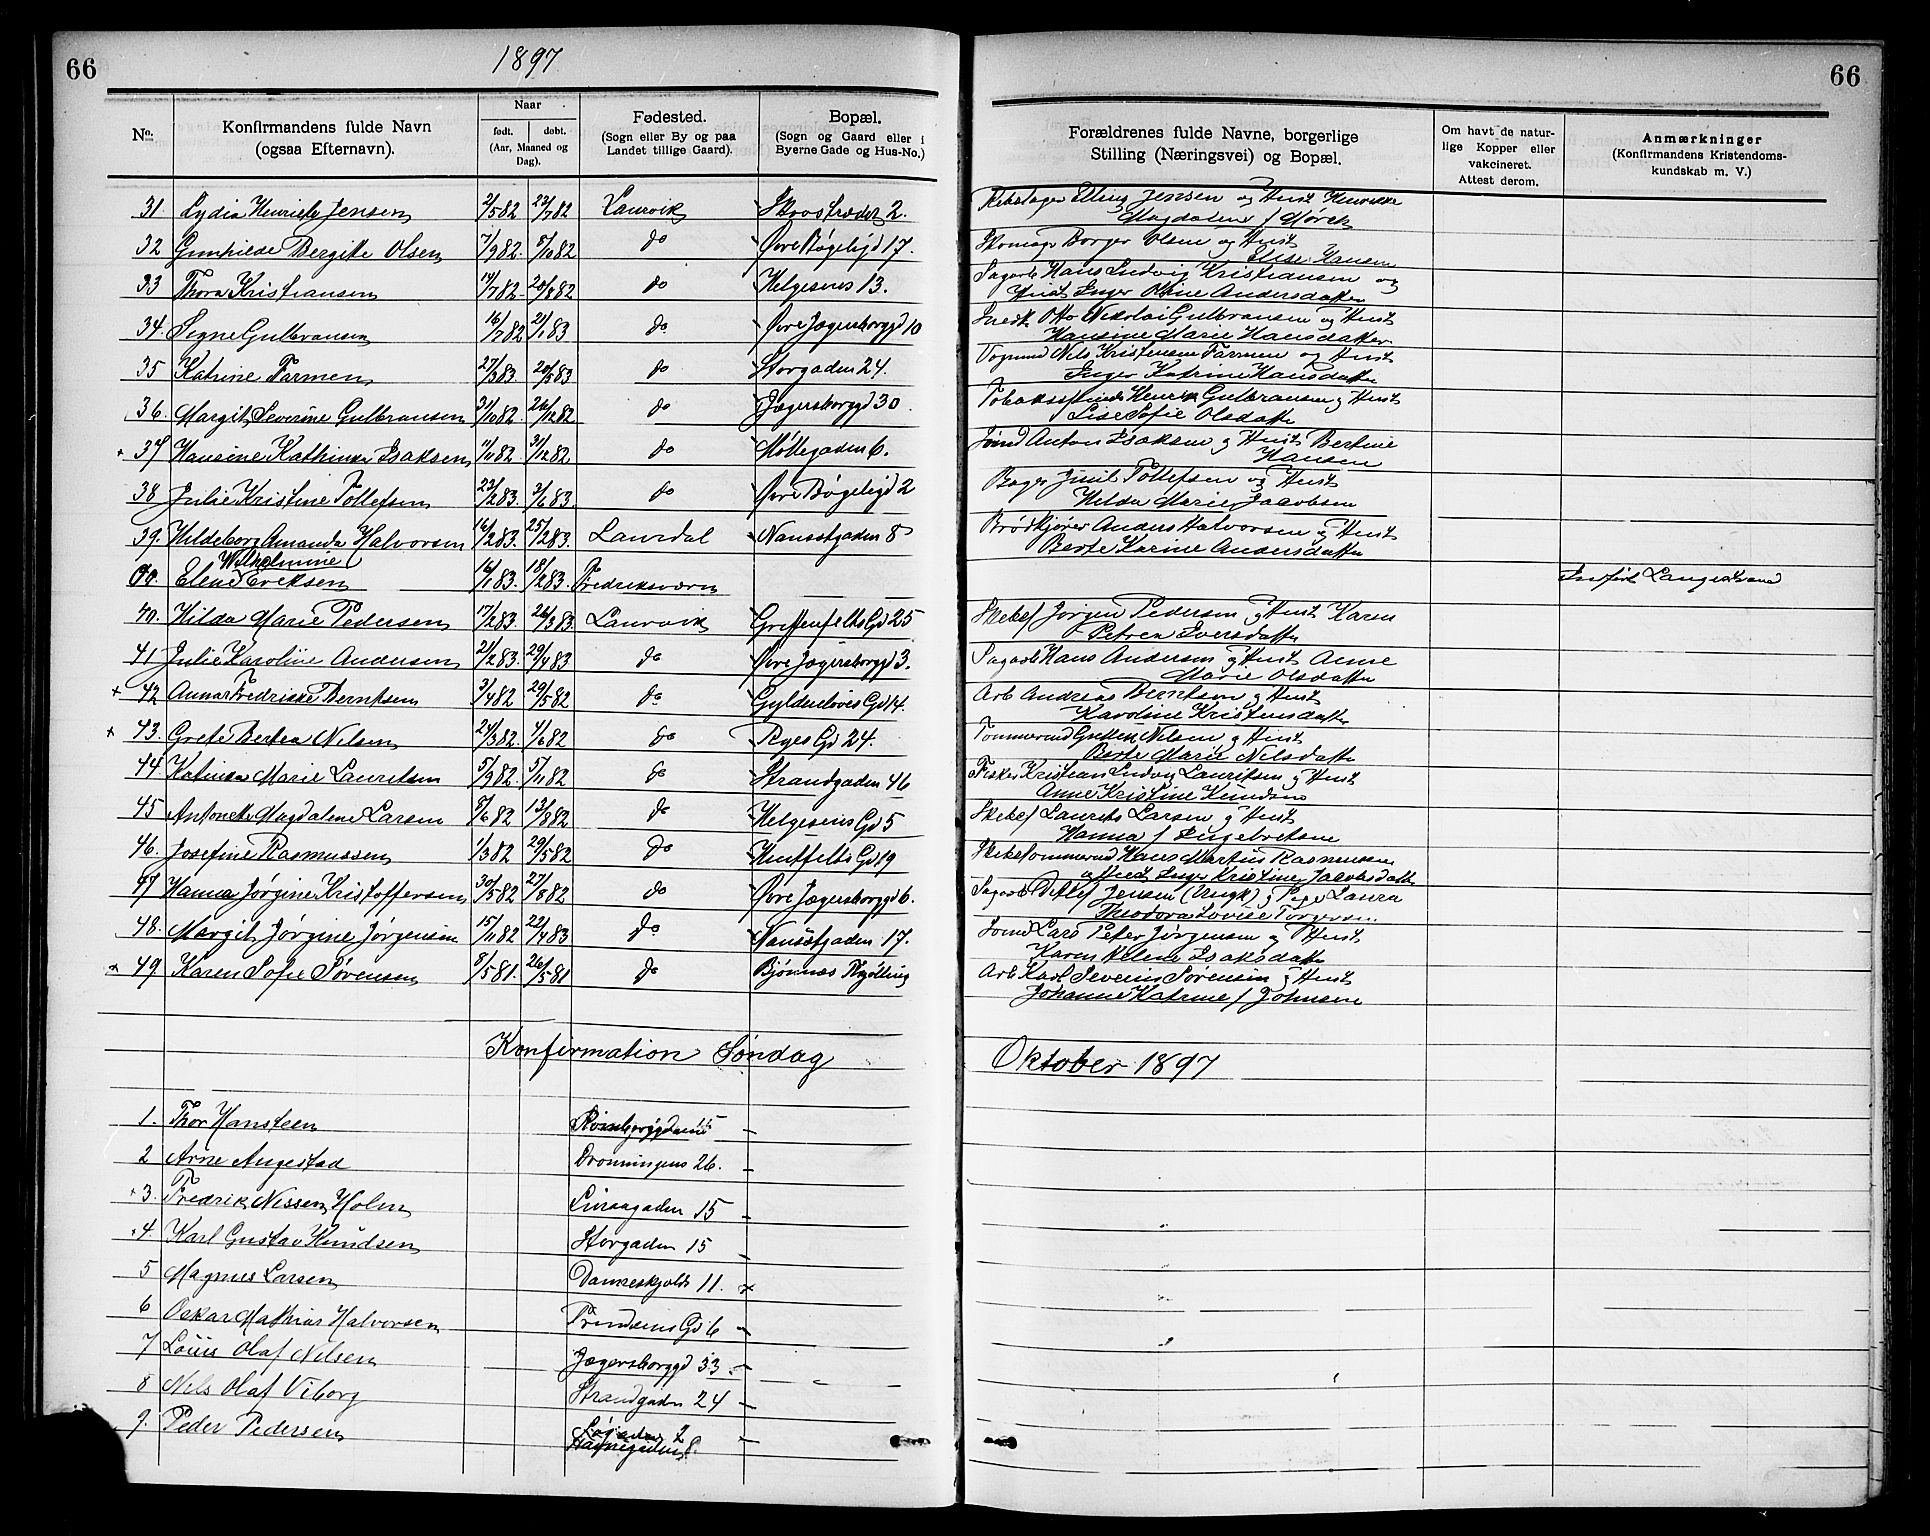 66
1897
66
No.
Konfirmandens fulde Navn
(ogsaa Efternavn).
Naar
født. døbt.
(Aar, Maaned og Dag).
Fødested.
(Sogn eller By og paa
Landet tillige Gaard).
Bopæl.
(Sogn og Gaard eller i
Byerne Gade og Hus-No.)
Forældrenes fulde Navne, borgerlige
Stilling (Næringsvei) og Bopæl.
Om havt de natur-
lige Kopper eller
vakcineret.
Attest derom.
Anmærkninger
(Konfirmandens Kristendoms-
kundskab m. V.)
31 Lydia Henriette Jensen 2/5 82 22/7 82 Laurvik 2. Jensen og Hust Henrikke
Magdalene f Mørch
32 Gunhilde Bergite Olsen 7/9 82 8/10 82 do Øvre Bøgeligd 17. Skomager Borger Olsen og Hust
Elise Hansen
33 Thora Kristiansen 14/7 82 20/8 82 do Helgesens 13. Sagarb Hans Ludvig Kristiansen og
Hust Inger Oline Andersdatter
34. Signe Gulbransen 16/7 82 21/1 83 do Øvre Jægersborggd 10 Otto Nikolai Gulbransen og Hust
Hansine Marie Hansdatter
35 Katrine Farmen 27/3 83 20/5 83 do Storgaden 24. Vognmd Nils Kristensen Farmen og Hust
Inger Katrine Hansdatter
36. Margit Severine Gulbransen 31/10 82 26/12 82 do Jægersborggd 30 Henrik Gulbransen og Hust
Lise Sofie Olsdatter
37 Hansine Kathinka Isaksen 11/11 82 31/12 82 do Møllegaden 6. Sømd Anton Isaksen og Hust Bertine
Hansen
38 Julie Kristine Tollefsen 22/2 83. 3/6 83. do Øvre Bøgeligd 2 Bager Juul Tollefsen og Hust
Hilda Marie Jacobsen
39. Hildeborg Amanda Halvorsen 16/2 83. 25/2 83. Laurdal Nansetgaden 8 Brødkjører Anders Halvorsen og Hust
Berte Karine Andersdatter
Wilhelmine
00. Elene Eriksen 16/1 83. 18/2 83. Fredriksværn Indført Langestrand
40. Hilda Marie Pedersen 17/2 83. 26/3 83. Laurvik Griffenfelts Gd 25 Jørgen Pedersen og Hust Karen
Petrea Iversdatter
41 Julie Karoline Andersen 21/2 83. 29/4 83 do Øvre Jægersborggd 3. Sagarb Hans Andersen og Hust Anne
Marie Olsdatter
+ 42 Anna Fredrikke Berntsen 3/4 82 29/5 82 do Gyldenløves Gd 14. Arb Andreas Berntsen og Hust
Karoline Kristensdatter
+ 43. Grete Bertea Nilsen 24/3 82. 4/6 82 do Ryes Gd 24. Tømmermd Nilsen og Hust
Berte Marie Nilsdatter
44 Katinka Marie Lauritsen 5/9 82 5/11 82 do Strandgaden 46 Fisker Kristian Ludvig Lauritsen og Hust
Anne Kristine Knudsen
45 Antonette Magdalene Larsen 8/6 82 13/8 82 do Helgesens Gd 5 Laurits Larsen og Hust
Hanna f Engebretsen
46. Josefine Rasmussen 1/3 82 29/5 82 do Huitfelts Gd 19 Hans Martius Rasmussen
Hust Inger Kristine Jacobsdatter
47 Hanna Jørgine Kristoffersen 30/5 82 27/8 82 do Øvre Jægersborggd 6. Sagarb Detlef Jensen (Ungk) og Pige Laura
Theodora Lovise Torgersen
48. Margit Jørgine Jørgensen 15/11 82 22/4 83 do Nansetgaden 17. Sømd Lars Peter Jørgensen og Hust
Karen Helene Isaksdatter
49 Karen Sofie Sørensen 8/5 81. 26/5 81 do Bjønnes Arb Karl Severin Sørensen og Hust
Johanne Katrine f Johnsen
Konfirmation Søndag Oktober 1897
1. Thor Hansteen
2 Arne Angestad Dronningens 26. –
+3. Fredrik Nissen Holm 15 –
4. Karl Gustav Knudsen Storgaden 15 –
5 Magnus Larsen Danneskjolds 11.
6 Oskar Mathias Halvorsen Gd 6 –
7 Louis Olaf Nilsen Jægersborggd 33. –
8 Nils Olaf Viborg Strandgaden 24 –
9. Peder Pedersen 2
Havnegaden 8. –